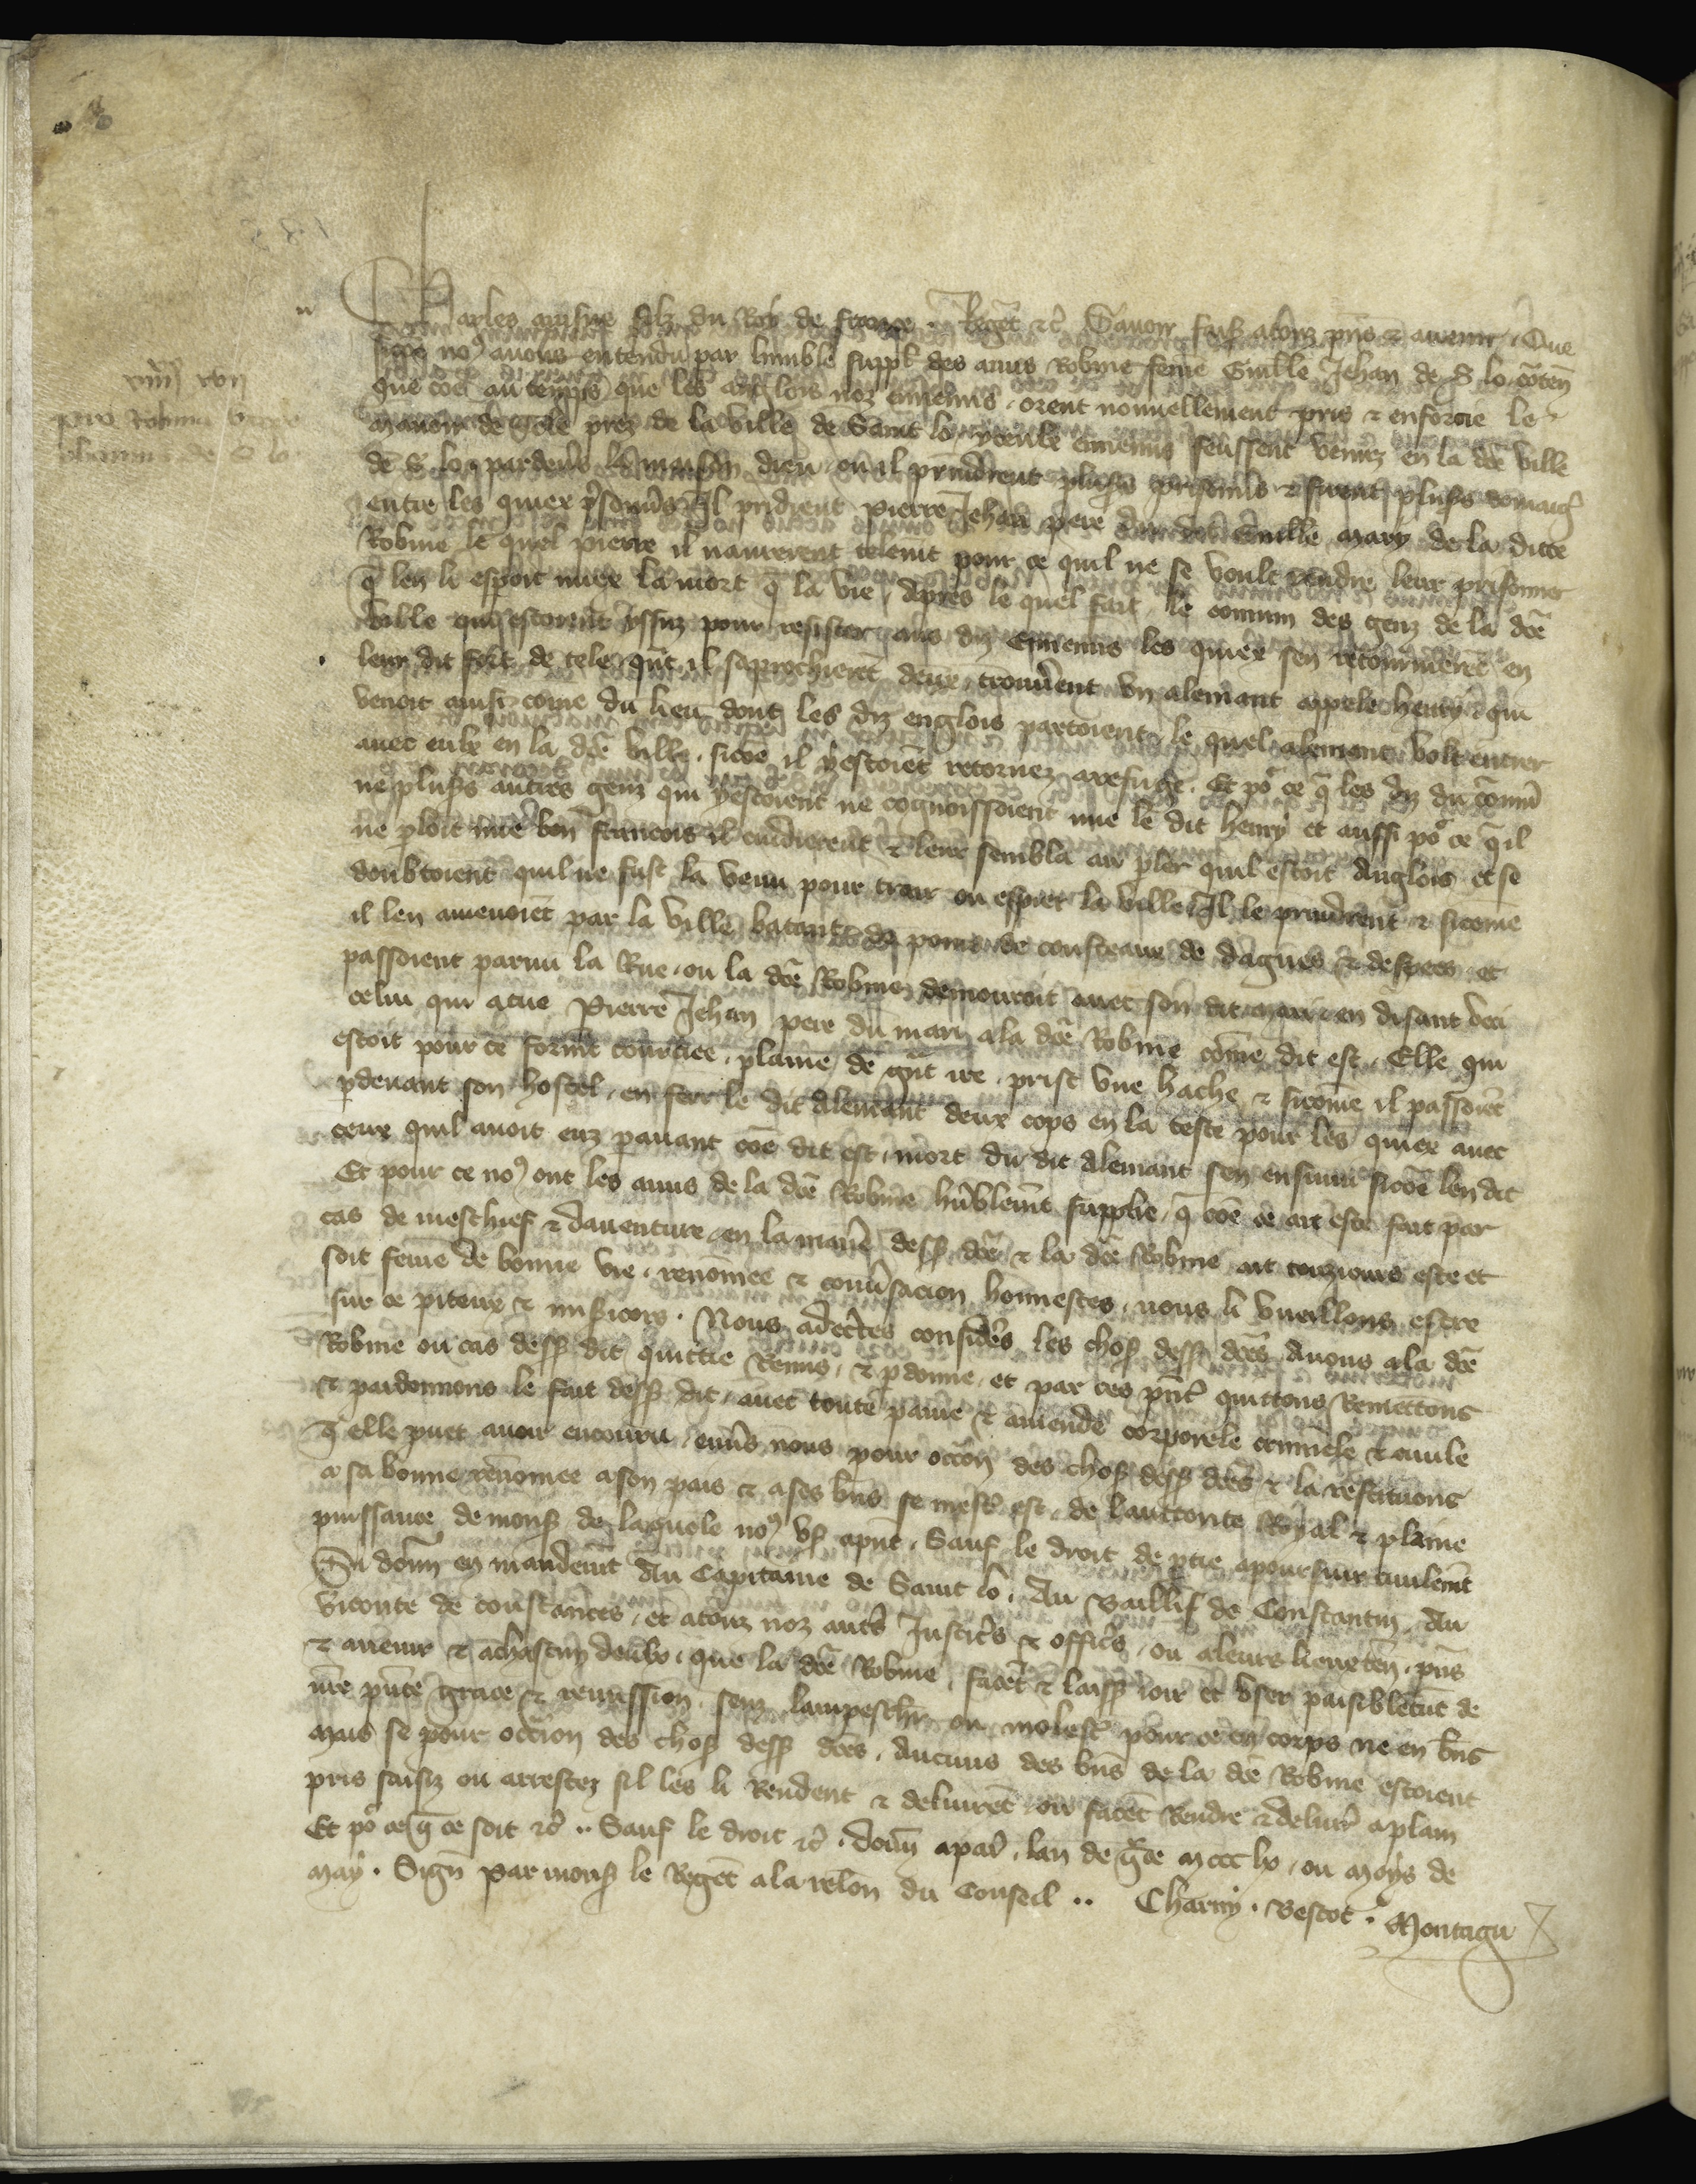 iiiixx xvii
pro Robina
Jehannis de S lo
Charles ainsne filz du Roy de france Regẽt &c̃ Sauoir faiſ atouz p̃ns & auenir Que
sicõe noꝰ auons entendu par humble suppl̃ des amis Robine feme Guille Jehan de S lo cõten̄
que cõe au temps que les anglois noz enn̄emis orent nouuellement pris & enforcie le
manoir de prez de la ville de Saint lo yceulx ennemis feussent venuz en la dc̃e ville
de S lo par deu̾s la maison dieu ou il prind̾rent plus̾s prisonn̾s & firent plus̾s domaig̾
entre les quiex p̾sonn̾s Il prid̾rent Pierre Jehan pere du dit Guille mary de la dicte
Robine le quel pierre il naurerent telem̃t pour ce quil ne se voult rendre leur prisonnier
q̃ len li espoit miex la mort q̃ la vie Apres le quel fait le comun des genz de la dc̃e
ville qui estoient yssuz pour resister aus diz Ennemis les quiex sen retournerẽt en
leur dit fort de tele qñt il saprochierẽt deux trouu̾ent vn alemant appele henry qui
venoit ainsi come du lieu dont les diz englois partoient le quel alemant volt entrer
auec eulx en la dc̃e ville sicõe il y estoiẽt retornez arefuge Et po͛ ce q̃ les diz du cõmũ
ne plus̾s autres genz qui y estoient ne cognoissoient mie le dit henry et aussi po͛ ce q̃ il
ne p̱loit mie bon francois il cuid̾ierent & leur sembla au p̱ler quil estoit Anglois et se
doubtoient quil ne fust la venu pour trair ou espier la ville Il le prind̾rent & sicome
il len amenoiẽt par la ville batant de pomeaux de cousteaux de dagues & despees et
passoient parmi la Rue ou la dc̃e Robine demouroit auec son dit mari en disant veci
celui qui atue Pierre Jehan pere du mari ala dc̃e Robine come dit est Elle qui
estoit pour ce form̃t courciee plaine de gr̃t ire prist vne hache & sicome il passoiẽt
p̱deuant son hostel en feri le dit Alemant deux cops en la teste pour les quiex auec
ceux quil auoit euz p̱auant cõe dit est mort du dit Alemant sen ensuiui sicõe len dit
Et pour ce noꝰ ont les amis de la dc̃e Robine hũblem̃t supplie q̃ cõe ce ait este fait par
cas de meschief & dauenture en la manie̾ dess̾ dc̃e & la dc̃e Robine ait touziours este et
soit feme de bonne vie renõmee & conu̾sacion honnestes nous li vueillons estre
sur ce piteux & mis̾icors Nous adec̃tes consid̾es les chos̾ dess̾ dc̃es Auons ala dc̃e
Robine ou cas dess̾ dit quittie Remis & p̱donne et par ces p̃nt̾ quittons Remettons
& pardonnons le fait dess̾ dit auec toute paine & amende corporele criminele & ciuile
q̃ elle puet auoir encouru enu̾s nous pour occ̃on des chos̾ dess̾ dc̃es & la restituons
a sa bonne renõmee ason pais & ases bñs se mest̾ est de lauctorite Royal & plaine
puissance de mons̾ de laquele noꝰ vs̾ ap̃nt Sauf le droit de p̱tie apoursuir ciuilem̃t
Si donñ en mandem̃t Au Capitaine de Saint lo Au Baillif de Constantin Au
viconte de coustances et atouz noz aut̾s Justic̾s & offic̾s ou aleurs lieuxten p̃ns
& auenir & achascun deulx que la dc̃e Robine facẽt & laiss̾ ioir et vser paisiblem̃t de
nr̃e p̃nte grace & remission senz lampeschir ou molest̾ pour ce en corps ne en bñs
mais se pour occ̃ion des chos̾ dess̾ dc̃es Aucuns des bñs de la dc̃e Robine estoient
pris saisiz ou arrestez sil les li Rendent & deliurẽt ou facẽt Rendre & deliur̾ aplain
Et po͛ ce q̃ ce soit &c̃ Sauf le droit &c̃ donñ apar̾ lan de gr̃ce m ccc lx ou moys de
may Sign̄ Par mons̾ le Regẽt ala rel̃on du Conseil Charny Bescot Montagu